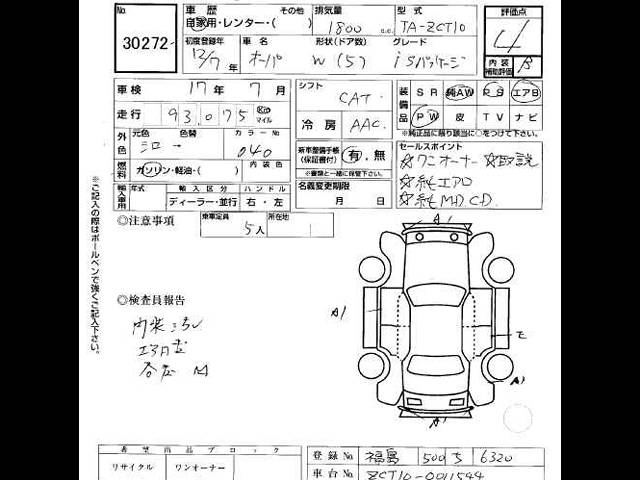 No.
30272
車歴
その他
自家用・レンター・( )
排気量
1800 c.c.
型式
TA-ZCT10
評価点
4
内装補助評価
B
初度登録年
12/7年
車名
オーパ
形状(ドア数)
W (5)
グレード
iSパッケージ
車検
17年7月
走行
93,075
Km
マイル
シフト
CAT
冷房
AAC
装備品
SR 純AW PS エアB
PW 皮 TV ナビ
※純正品に限り該当に○をつけて下さい。
外色
元色
色替
カラーNo.
内装色
シロ →
040
燃料
ガソリン・軽油・( )
新車整備手帳
(保証書付)
有・無
※書類と一緒に保管下さい。
セールスポイント
☆ワンオーナー ☆取説
☆純エアロ
☆純MD.CD.
輸入車用
年式
輸入区分
ハンドル
ディーラー・並行
右・左
名義変更期限
月 日
◎注意事項
乗車定員
5人
所在地
※ご記入の際はボールペンで強くご記入下さい。
◎検査員報告
A1
A1
A1
A1
希望商品ブロック
リサイクル
ワンオーナー
登録No. 福島 500 ち 6320
車台No. ZCT10-0011544